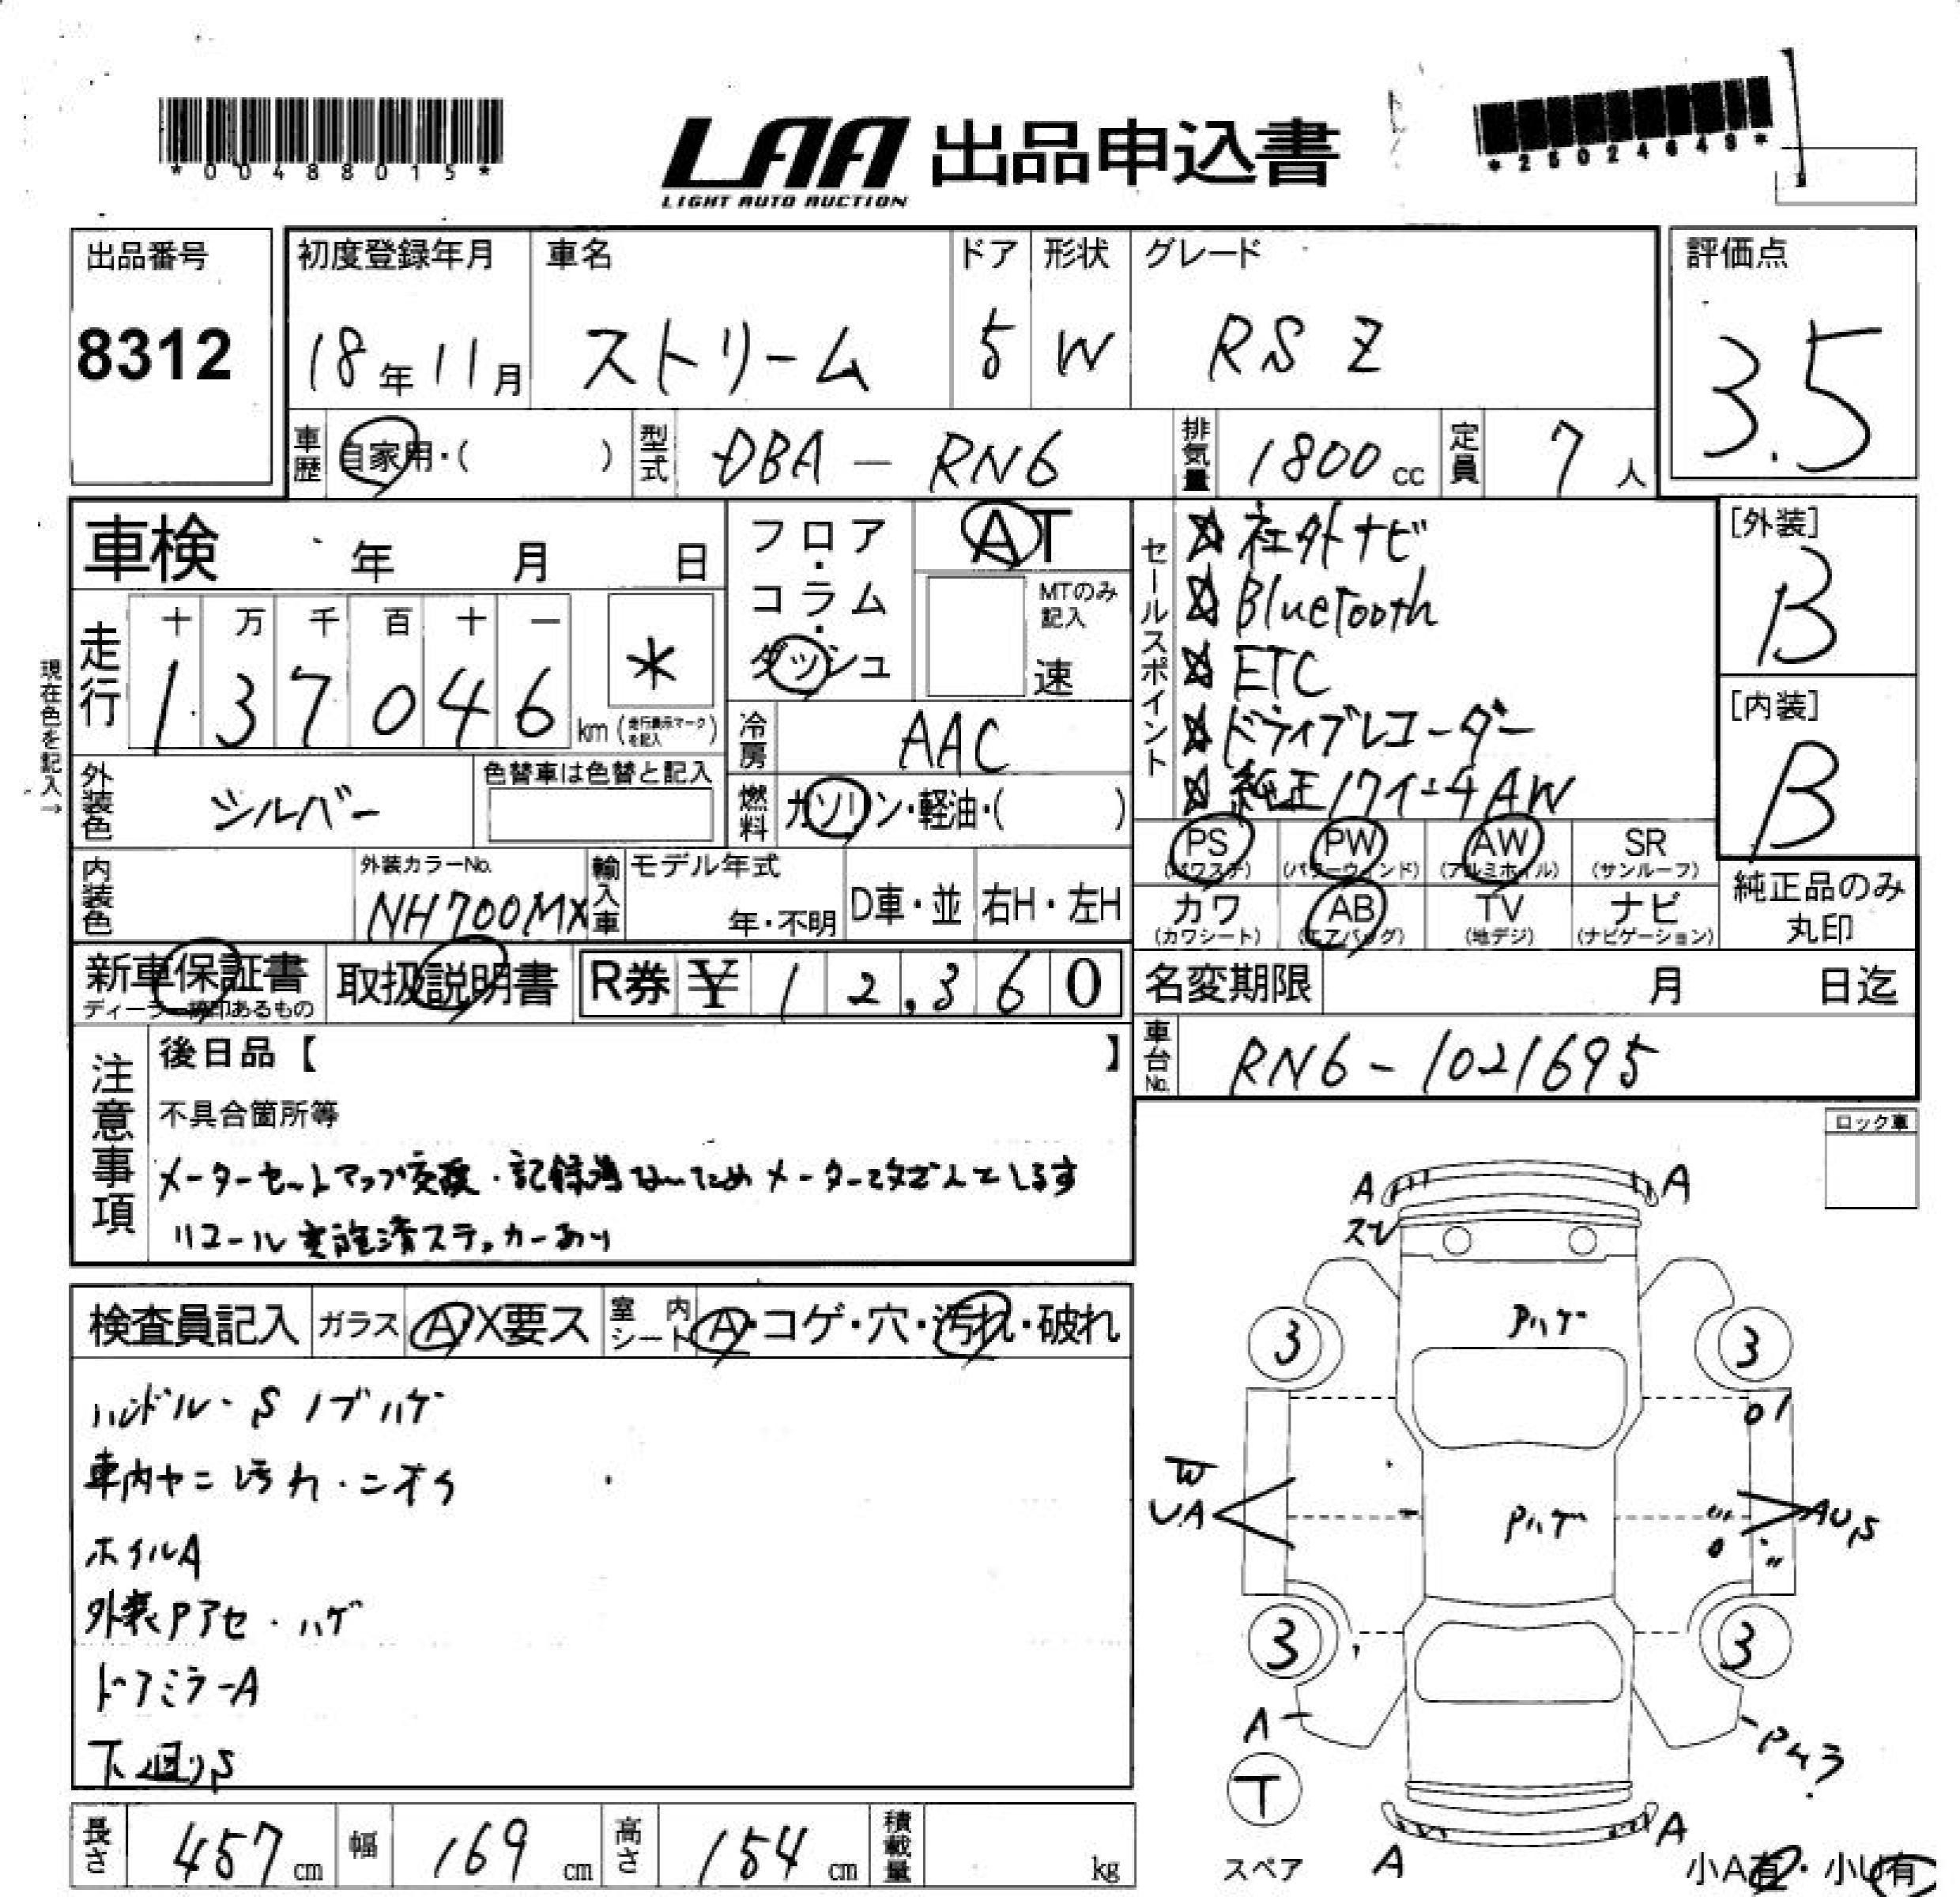 *00488015*
LAA 出品申込書
LIGHT AUTO AUCTION
*25024649*
出品番号
8312
初度登録年月
18年11月
車名
ストリーム
ドア
5
形状
W
グレード
RS Z
評価点
3.5
車歴 自家用・( )
型式 DBA-RN6
排気量 1800cc
定員 7人
車検 年 月 日
フロア・コラム・ダッシュ
AT
MTのみ記入
速
セールスポイント
社外ナビ
Bluetooth
ETC
ドライブレコーダー
純正17インチAW
[外装]
B
[内装]
B
現在色を記入→
走行 十 万 千 百 十 一
137046 km (走行表示マークを記入) *
冷房 AAC
外装色 シルバー
色替車は色替と記入
燃料 ガソリン・軽油・( )
PS (パワステ) PW (パワーウィンド) AW (アルミホイル) SR (サンルーフ)
カワ (カワシート) AB (エアバッグ) TV (地デジ) ナビ (ナビゲーション)
純正品のみ丸印
内装色
外装カラーNo.
NH700MX
輸入車 モデル年式 年・不明 D車・並 右H・左H
新車保証書
ディーラー捺印あるもの
取扱説明書
R券 ¥12,360
名変期限 月 日迄
車台No. RN6-1021695
注意事項
後日品【 】
不具合箇所等
メーターセットアップ交換・記録簿ないためメーター改ざんとします
リコール実施済ステッカーあり
ロック車
検査員記入 ガラス A・X要ス 室内シート A・コゲ・穴・汚れ・破れ
ハンドル・Sノブハゲ
車内ヤニ汚れ・ニオイ
ホイルA
外装Pアセ・ハゲ
ドアミラーA
下廻りS
A A
スレ
Pハゲ
3 3
W
UA
Pハゲ
AUS
3 3
A
T
スペア
A A
小A有・小U有
長さ 457cm 幅 169cm 高さ 154cm 積載量 kg